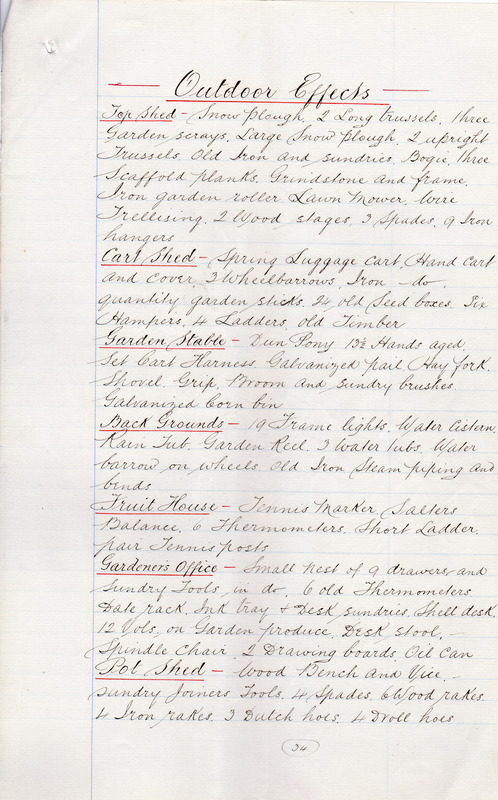 Outdoor Effects
Top Shed - Snow Plough. 2 Long trussels. three
Garden scrays. Large Snow plough. 2 upright
Trussels. Old Iron and sundries. Bogie. three
Scaffold planks. Grindstone and frame.
Iron garden roller Lawn Mower. wire
Trellising. 2 Wood stages. 3 Spades. 9 Iron
hangers
Cart Shed - Spring Luggage cart. Hand cart
and cover. 3 Wheelbarrows. Iron - do -
quantity garden sticks. 24 old Seed boxes. Six
Hampers. 4 Ladders. old Timber
Garden Stable - Dun Pony 13½ Hands aged.
Set Cart Harness. Galvanized pail Hay fork.
Shovel. Grip. Broom and sundry brushes.
Galvanized Corn bin
Back Grounds - 19 Frame lights. Water Cistern.
Rain Tub. Garden Reel. 3 Water tubs. Water
barrow on wheels. Old Iron Steam piping and
bends
Fruit House - Tennis Marker Salters
Balance. 6 Thermometers. Short Ladder.
pair Tennis posts
Gardener's Office - Small nest of 9 drawers and
Sundry Tools in do. 6 old Thermometers
Date rack. Ink tray & Desk sundries. Shell desk.
12 Vols. on Garden produce. Desk stool. -
Spindle Chair. 2 Drawing boards. Oil Can
Pot Shed - Wood Bench and Vice. -
Sundry Joiners Tools. 4 Spades. 6 Wood rakes.
4 Iron rakes. 3 Dutch hoes. 4 Droll hoes
34